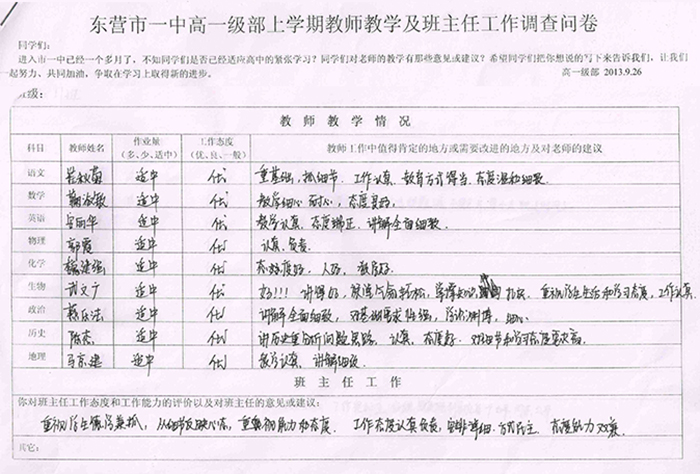 东营市一中高一级部上学期教师教学及班主任工作调查问卷
同学们：
进入市一中已经一个多月了，不知同学们是否已经适应高中的紧张学习？同学们对老师的教学有那些意见或建议？希望同学们把你想说的写下来告诉我们，让我们
一起努力、共同加油，争取在学习上取得新的进步。 高一级部 2013.9.26
级：
教 师 教 学 情 况
科目 教师姓名 作业量（多、少、适中） 工作态度（优、良、一般） 教师工作中值得肯定的地方或需要改进的地方及对老师的建议
语文 适中 优 重基础，抓细节．工作认真．教育方式得当．态度温和细致．
数学 适中 优 教学细心 耐心，态度良好．
英语 适中 优 教学认真．态度端正．讲解全面细致．
物理 郭霞 适中 优 认真、负责．
化学 适中 优 态度好，人好，
生物 适中 优 好!!! 讲得好，工作认真
政治 适中 优 讲解全面细致，细心．
历史 陈志 适中 优 讲历史重分析问题思路．认真，态度好．对细节和学习态度要求高．
地理 适中 优 教学认真．讲解细致．
班 主 任 工 作
你对班主任工作态度和工作能力的评价以及对班主任的意见或建议：
重视 从细节反映心态，重 能力和态度． 工作态度认真负责，安排详细．方式民主．态度能力双赢．
其它：